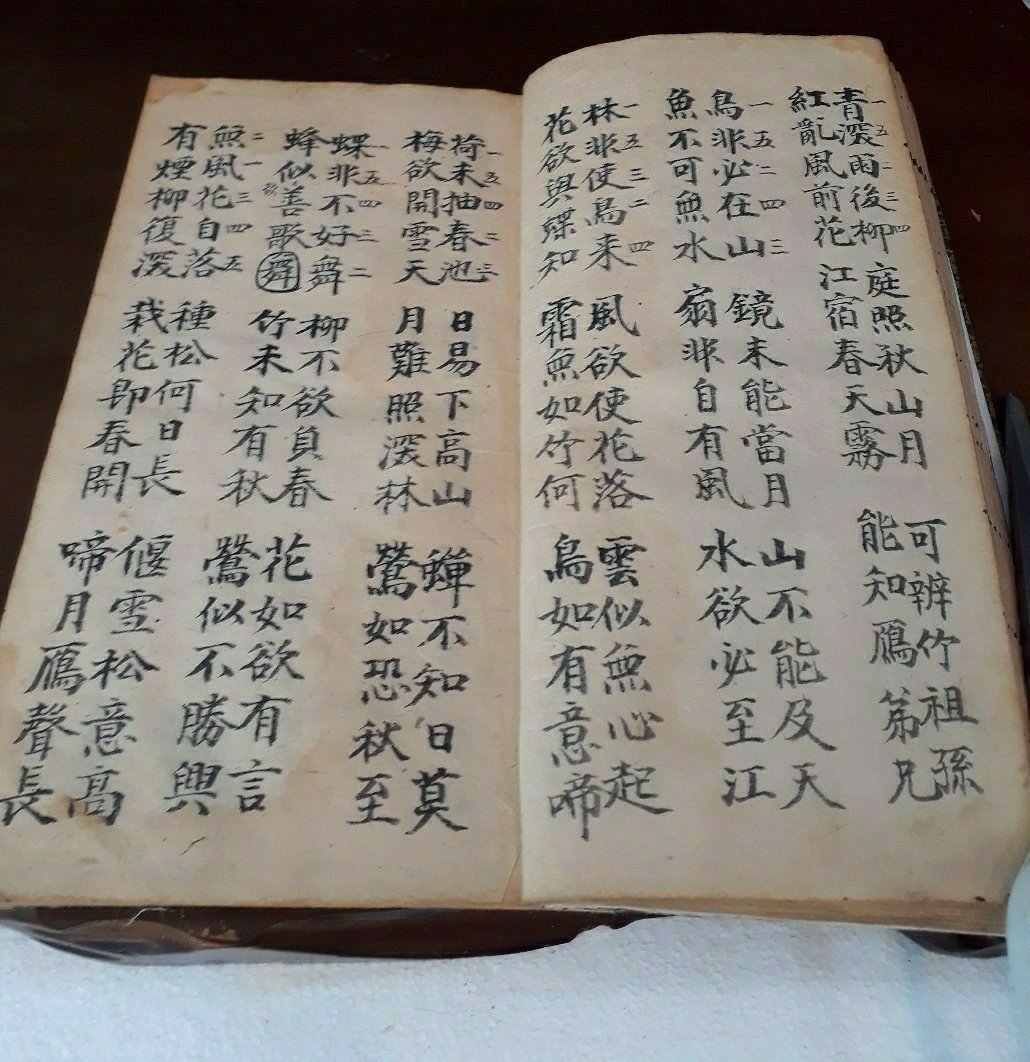 一五二三四
青深雨後柳 庭照秋山月 可辨竹祖孫
紅亂風前花 江宿春天霧 能知鴈弟兄
一五二四三
鳥非必在山 鏡未能當月 山不能及天
魚不可無水 扇非自有風 水欲必至江
一五三二四
林非使鳥来 風欲使花落 雲似無心起
花欲與蝶知 霜無如竹何 鳥如有意啼
一五四二三
荷未抽春池 日易下高山 蟬不知日莫
梅欲開雪天 月難照深林 鶯如恐秋至
一五四三二
蝶非不好舞 柳不欲負春 花如欲有言
蜂似善歌舞 竹未知有秋 鶯似不勝興
二一三四五
無風花自落 種松何日長 偃雪松意高
有煙柳復深 栽花即春開 啼月鴈聲長